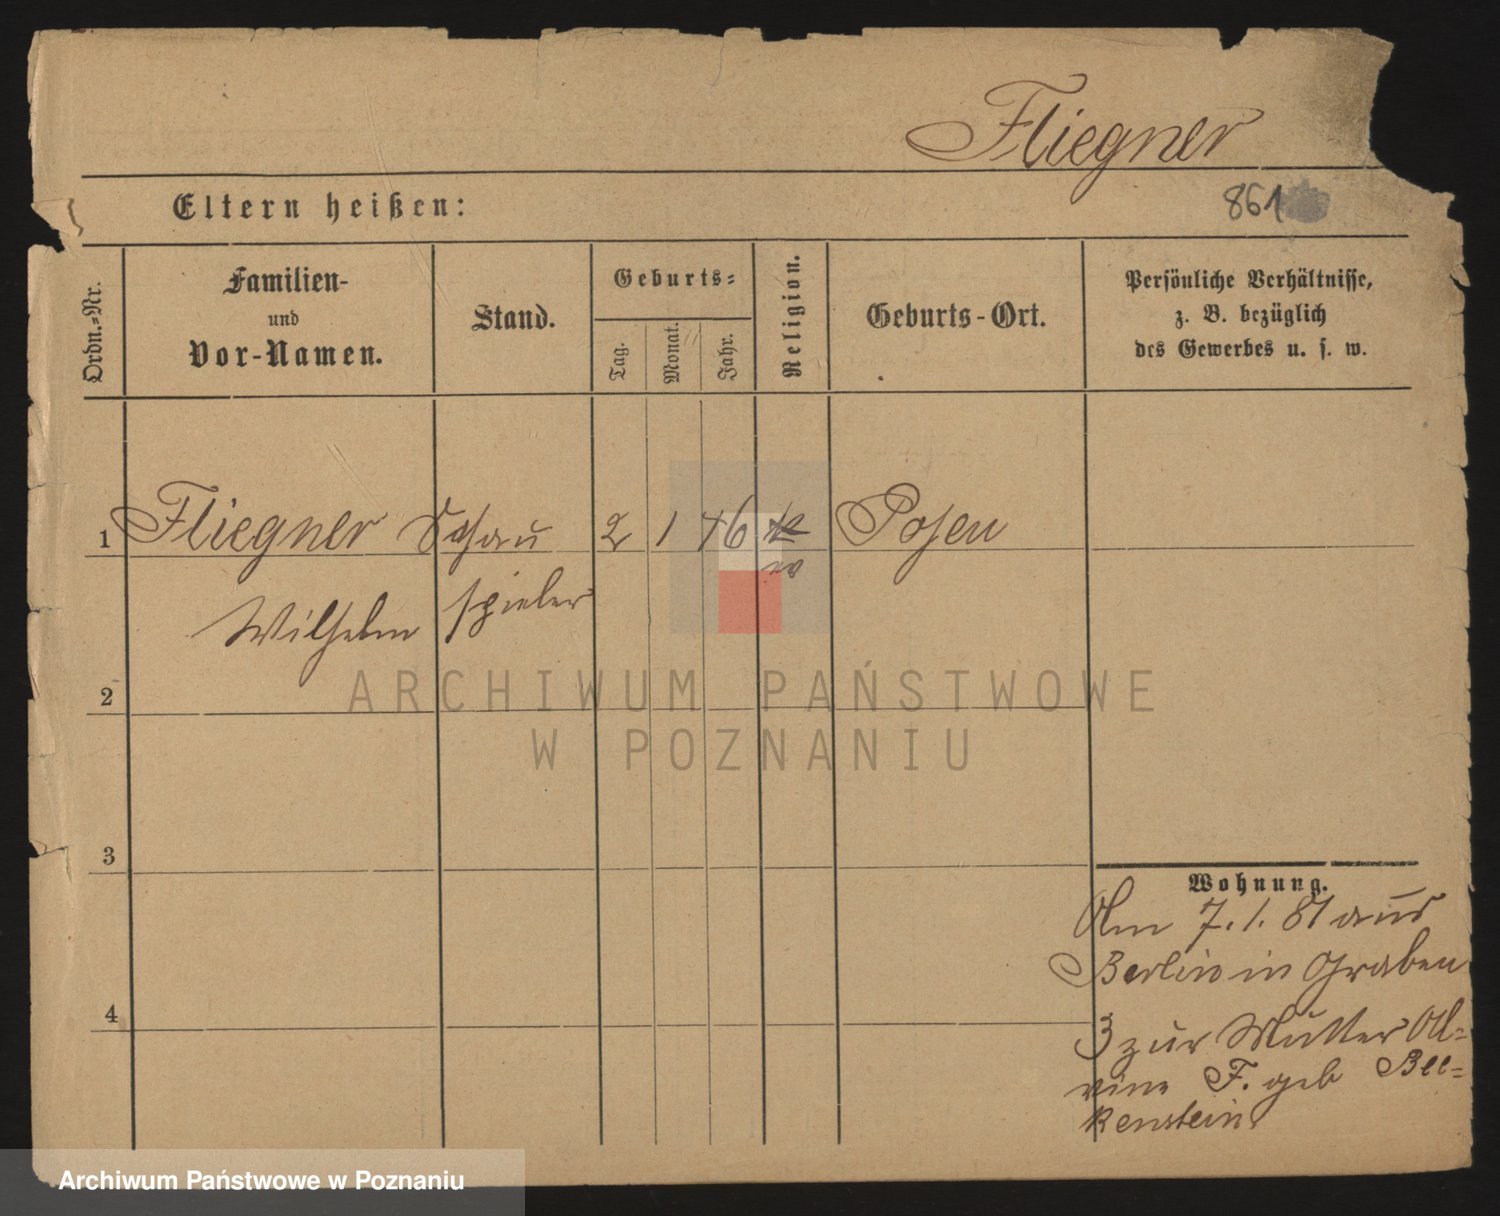 Fliegner
861
Eltern heißen:
Ordn.-Nr.
Familien-
und
Vor-Namen.
Stand.
Geburts-
Tag.
Monat.
Jahr.
Religion.
Geburts-Ort.
Persönliche Verhältnisse,
z. B. bezüglich
des Gewerbes u. s. w.
1 Fliegner Schau 2 1 46 Posen
ev
Wilhelm spieler
2
ARCHIWUM PAŃSTWOWE
W POZNANIU
3
Wohnung.
Am 7. 1. 81 aus
Berlin in Graben
4
3 zur Mutter Al=
vine F. geb Bee=
kenstein
Archiwum Państwowe w Poznaniu